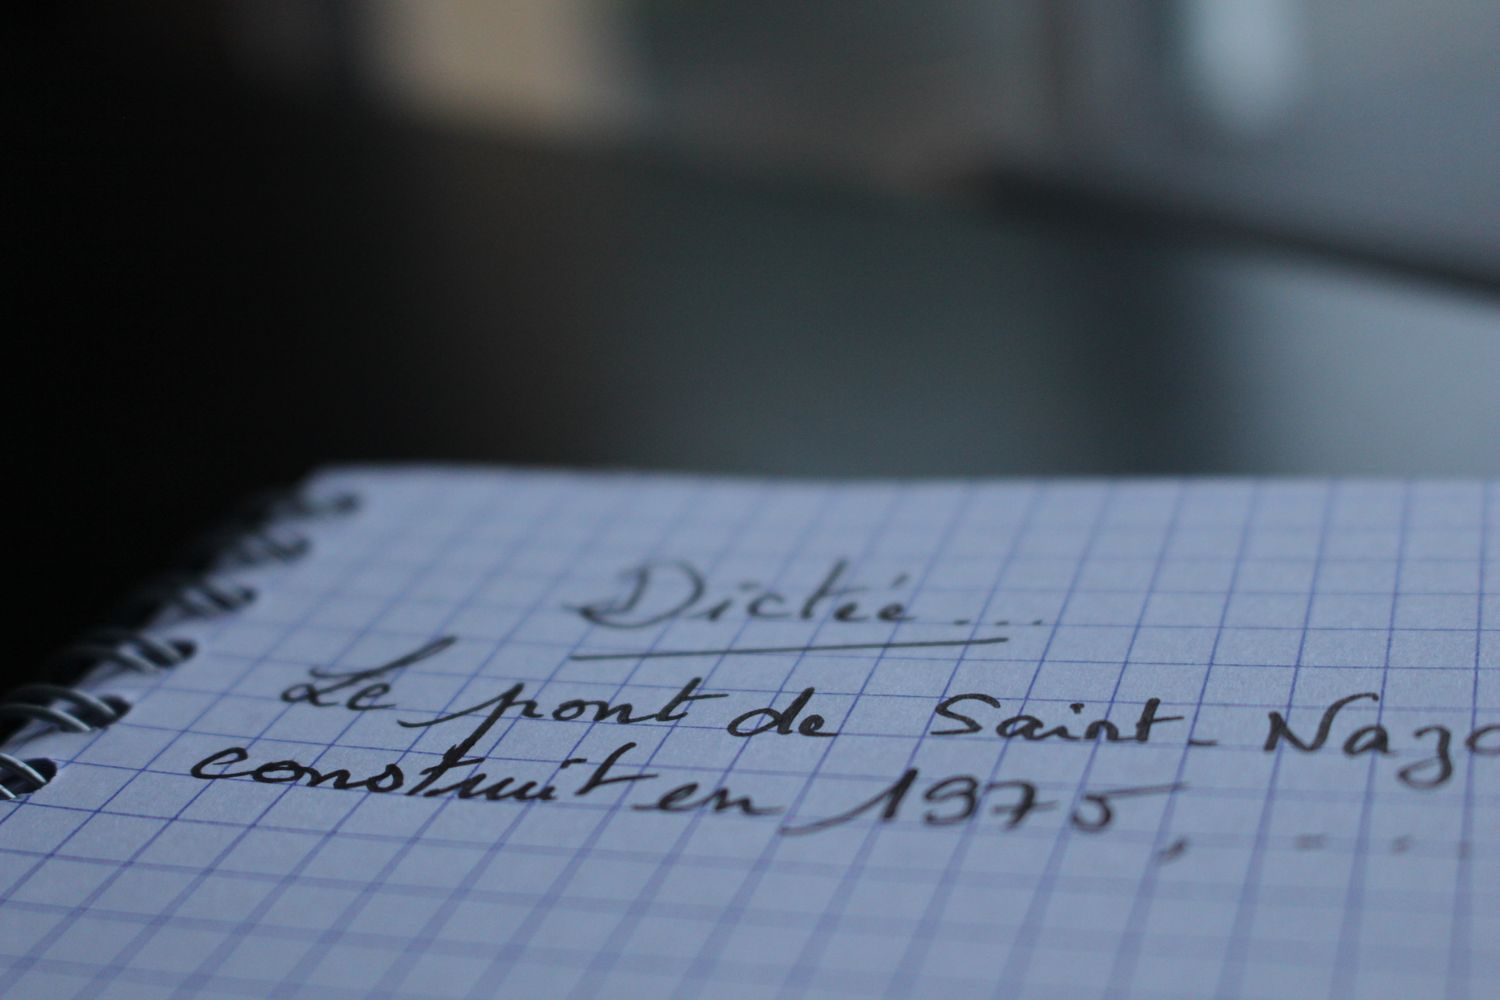 Dictée...
Le pont de Saint-Naza
construit en 1975, ....